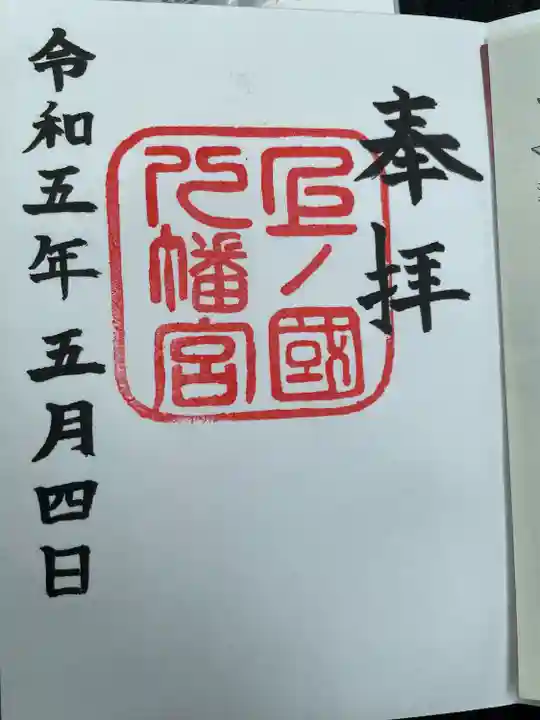 奉拝
呂ノ國
八幡宮
令和五年五月四日